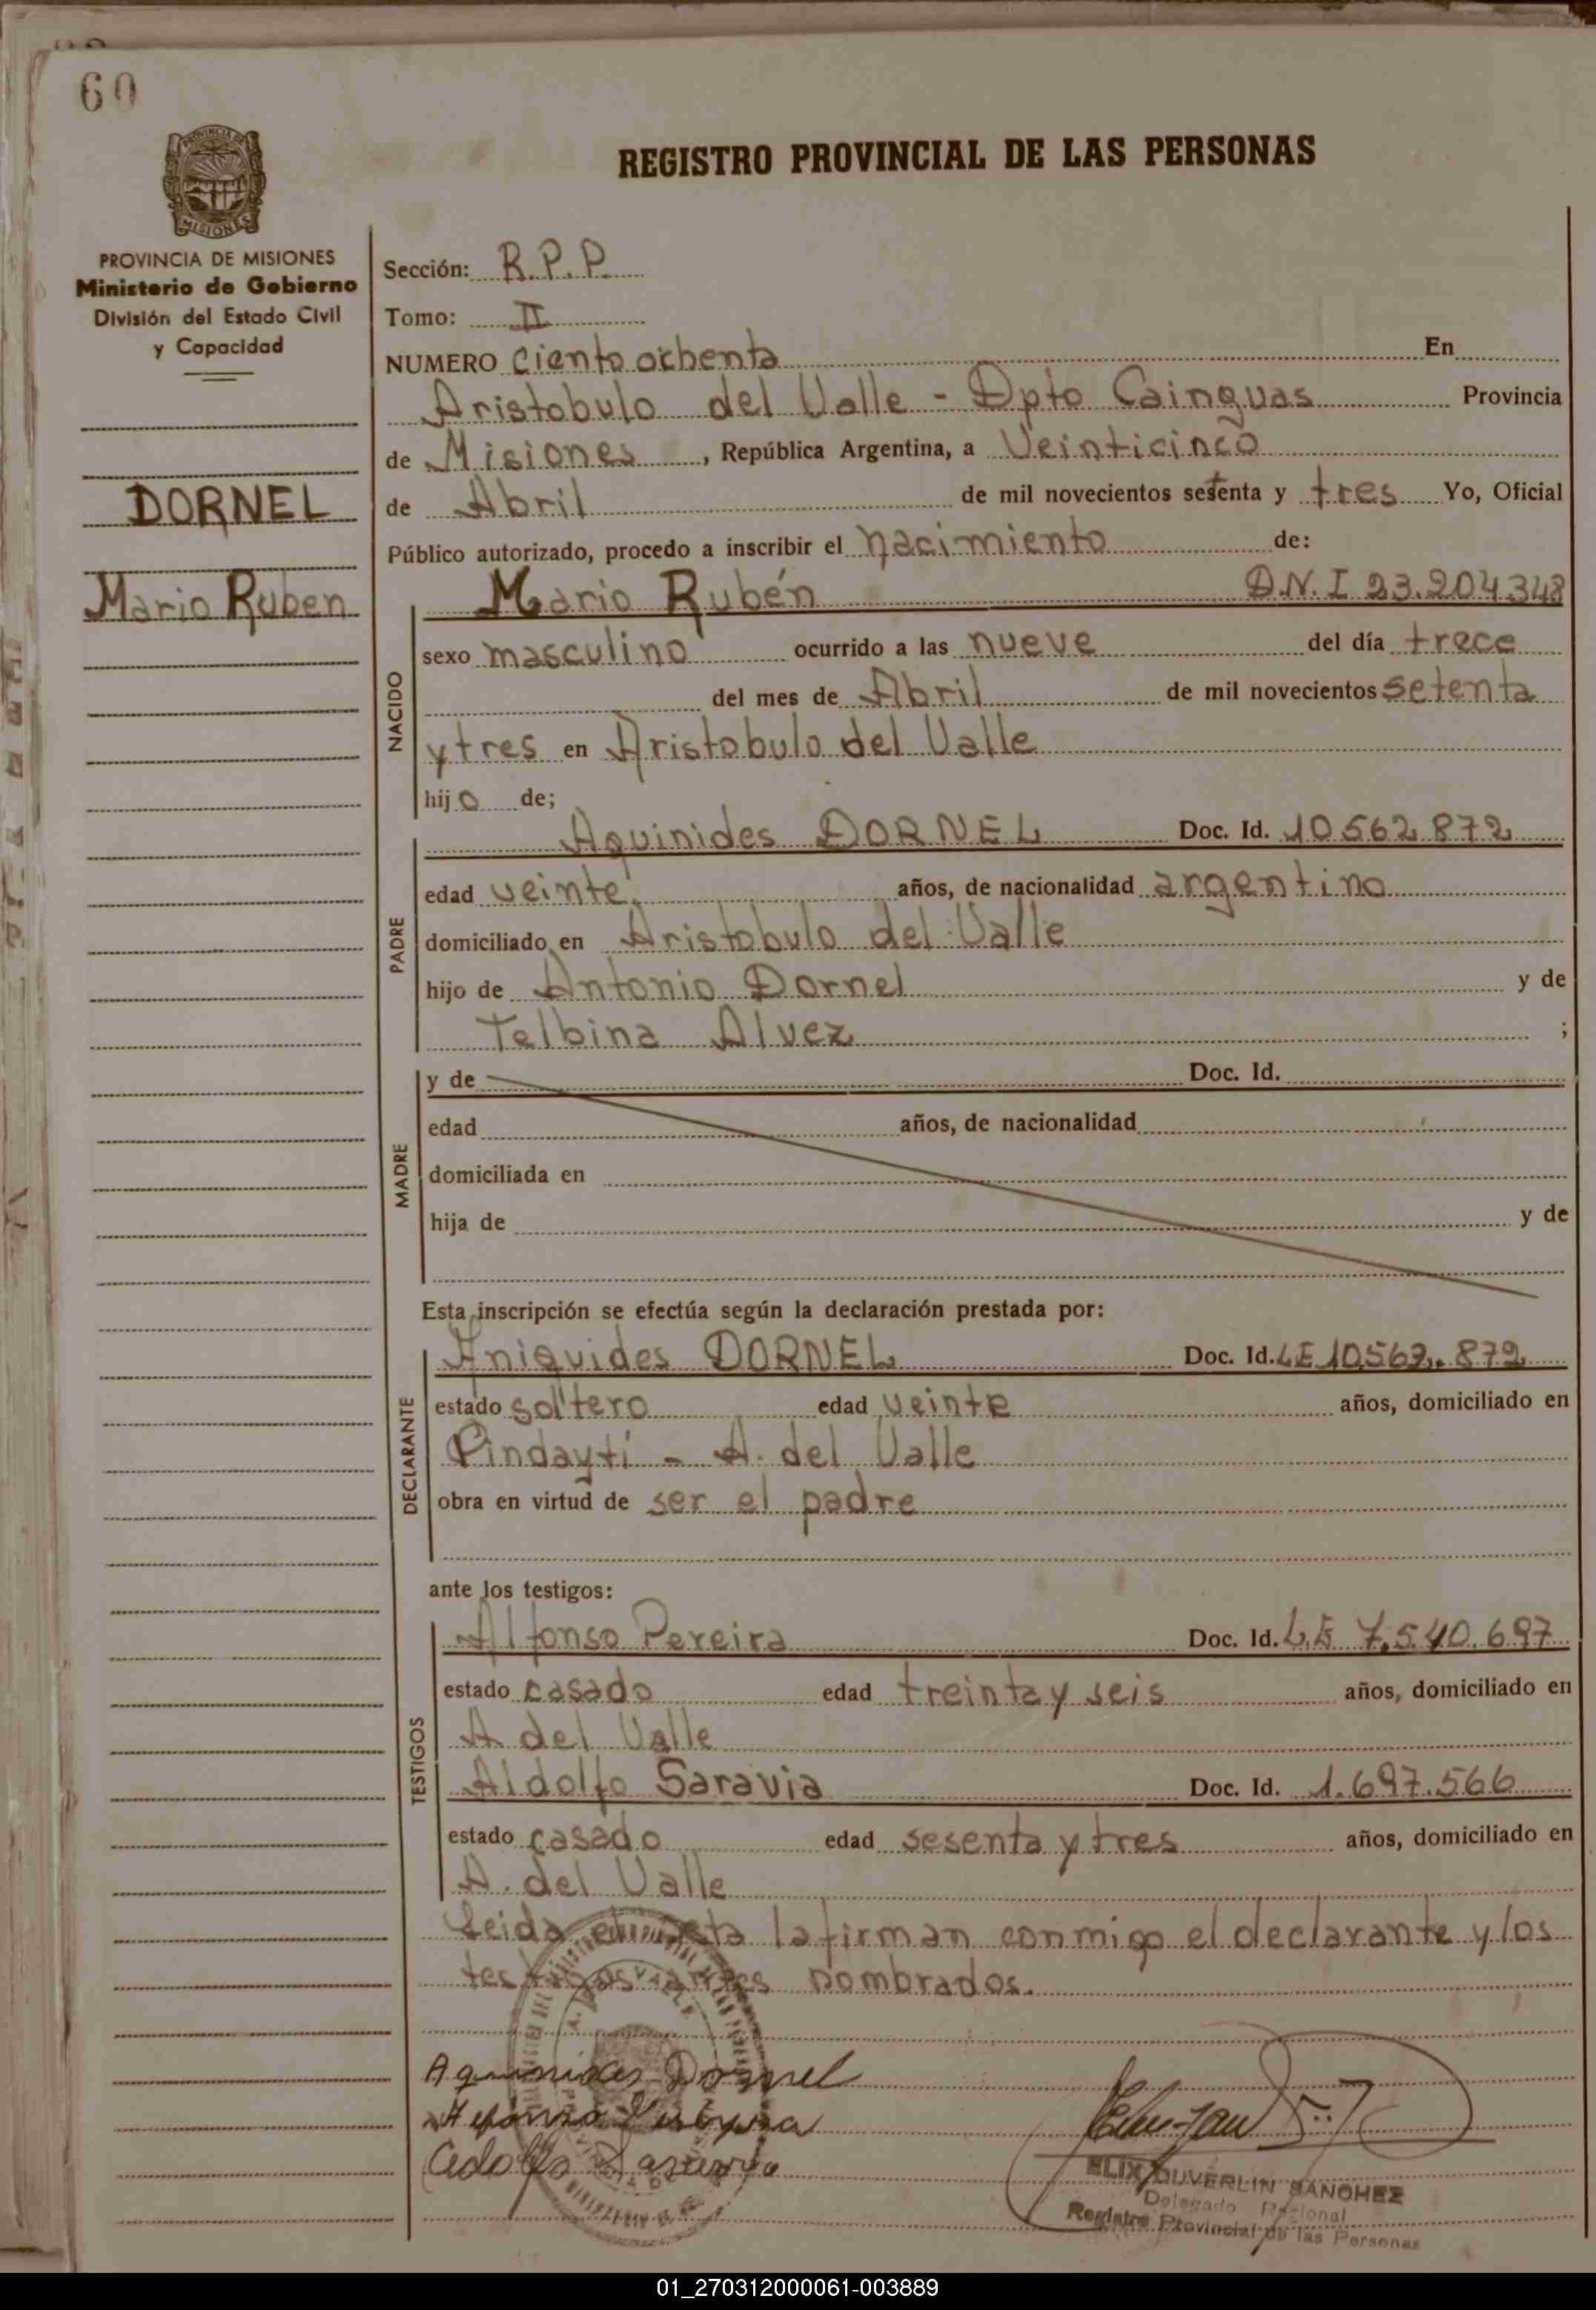 60
REGISTRO PROVINCIAL DE LAS PERSONAS
PROVINCIA DE MISIONES
Ministerio de Gobierno
División del Estado Civil
y Capacidad
DORNEL
Mario Ruben
Sección: R.P.P.
Tomo: II
NUMERO Ciento ochenta En
Aristobulo del Valle - Dpto Cainguas Provincia
de Misiones, República Argentina, a Veinticinco
de Abril de mil novecientos setenta y tres Yo, Oficial
Público autorizado, procedo a inscribir el nacimiento de:
Mario Rubén D.N.I 23.204.348
NACIDO
sexo masculino ocurrido a las nueve del día trece
del mes de Abril de mil novecientos setenta
y tres en Aristobulo del Valle
hijo de;
PADRE
Aquinides DORNEL Doc. Id. 10562872
edad veinte años, de nacionalidad argentino
domiciliado en Aristobulo del Valle
hijo de Antonio Dornel y de
Telbina Alvez ;
MADRE
y de Doc. Id.
edad años, de nacionalidad
domiciliada en
hija de y de
Esta inscripción se efectúa según la declaración prestada por:
DECLARANTE
Aniquides DORNEL Doc. Id. LE 10562.872
estado soltero edad veinte años, domiciliado en
Pindaytí - A. del Valle
obra en virtud de ser el padre
ante los testigos:
TESTIGOS
Alfonso Pereira Doc. Id. L.E 7.540.697
estado casado edad treinta y seis años, domiciliado en
A del Valle
Aldolfo Saravia Doc. Id. 1.697.566
estado casado edad sesenta y tres años, domiciliado en
A. del Valle
Leida el acta la firman conmigo el declarante y los
testigos antes nombrados.
Aquinides Dornel
Adolfo Saravia
ELIX DUVERLIN SANCHEZ
Delegado Regional
Registro Provincial de las Personas
01_270312000061-003889